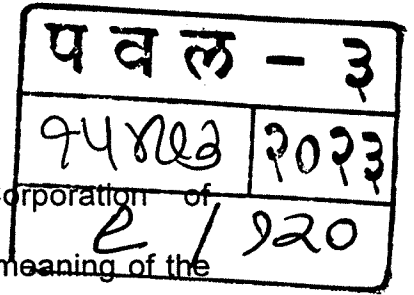 प व ल - ३
२०२३
orporation of
/ १२०
meaning of the